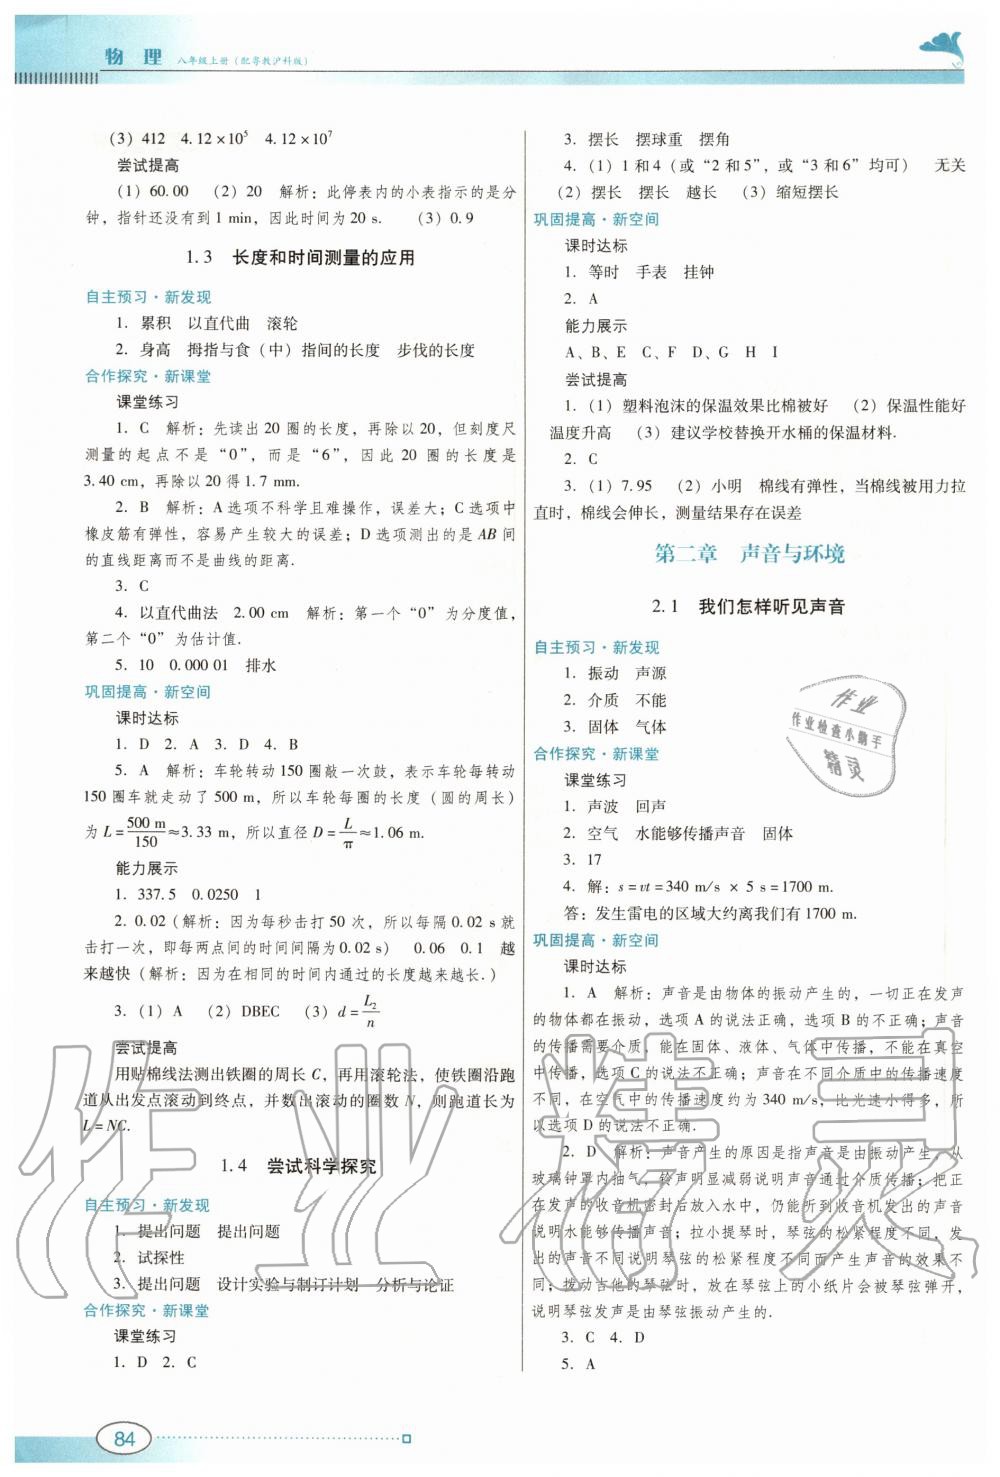 物 理 八年级上册(配粤教沪科版)
(3) 412 4.12×10⁵ 4.12×10⁷
尝试提高
(1) 60.00 (2) 20 解析：此停表内的小表指示的是分
钟，指针还没有到 1 min，因此时间为 20 s. (3) 0.9
1.3 长度和时间测量的应用
自主预习·新发现
1. 累积 以直代曲 滚轮
2. 身高 拇指与食（中）指间的长度 步伐的长度
合作探究·新课堂
课堂练习
1. C 解析：先读出 20 圈的长度，再除以 20，但刻度尺
测量的起点不是“0”，而是“6”，因此 20 圈的长度是
3.40 cm，再除以 20 得 1.7 mm.
2. B 解析：A 选项不科学且难操作，误差大；C 选项中
橡皮筋有弹性，容易产生较大的误差；D 选项测出的是 AB 间
的直线距离而不是曲线的距离.
3. C
4. 以直代曲法 2.00 cm 解析：第一个“0”为分度值，
第二个“0”为估计值.
5. 10 0.000 01 排水
巩固提高·新空间
课时达标
1. D 2. A 3. D 4. B
5. A 解析：车轮转动 150 圈敲一次鼓，表示车轮每转动
150 圈车就走动了 500 m，所以车轮每圈的长度（圆的周长）
为 L=500 m/150≈3.33 m，所以直径 D=L/π≈1.06 m.
能力展示
1. 337.5 0.0250 1
2. 0.02（解析：因为每秒击打 50 次，所以每隔 0.02 s 就
击打一次，即每两点间的时间间隔为 0.02 s） 0.06 0.1 越
来越快（解析：因为在相同的时间内通过的长度越来越长.）
3. (1) A (2) DBEC (3) d=L₂/n
尝试提高
用贴棉线法测出铁圈的周长 C，再用滚轮法，使铁圈沿跑
道从出发点滚动到终点，并数出滚动的圈数 N，则跑道长为
L=NC.
1.4 尝试科学探究
自主预习·新发现
1. 提出问题 提出问题
2. 试探性
3. 提出问题 设计实验与制订计划 分析与论证
合作探究·新课堂
课堂练习
1. D 2. C
3. 摆长 摆球重 摆角
4. (1) 1 和 4（或“2 和 5”，或“3 和 6”均可） 无关
(2) 摆长 摆长 越长 (3) 缩短摆长
巩固提高·新空间
课时达标
1. 等时 手表 挂钟
2. A
能力展示
A、B、E C、F D、G H I
尝试提高
1. (1) 塑料泡沫的保温效果比棉被好 (2) 保温性能好
温度升高 (3) 建议学校替换开水桶的保温材料.
2. C
3. (1) 7.95 (2) 小明 棉线有弹性，当棉线被用力拉
直时，棉线会伸长，测量结果存在误差
第二章 声音与环境
2.1 我们怎样听见声音
自主预习·新发现
1. 振动 声源
2. 介质 不能
3. 固体 气体
合作探究·新课堂
课堂练习
1. 声波 回声
2. 空气 水能够传播声音 固体
3. 17
4. 解：s=vt=340 m/s × 5 s=1700 m.
答：发生雷电的区域大约离我们有 1700 m.
巩固提高·新空间
课时达标
1. A 解析：声音是由物体的振动产生的，一切正在发声
的物体都在振动，选项 A 的说法正确，选项 B 的不正确；声音
的传播需要介质，能在固体、液体、气体中传播，不能在真空
中传播，选项 C 的说法不正确；声音在不同介质中的传播速度
不同，在空气中的传播速度约为 340 m/s，比光速小得多，所
以选项 D 的说法不正确.
2. D 解析：声音产生的原因是指声音由振动产生。从
玻璃钟罩内抽气，铃声明显减弱说明声音通过介质传播；把正
在发声的收音机密封后放入水中，仍能听到收音机发出的声音
说明水能够传播声音；拉小提琴时，琴弦的松紧程度不同，发
出的声音不同说明琴弦的松紧程度不同而产生声音的效果不
同；拨动吉他的琴弦时，放在琴弦上的小纸片会被琴弦弹开，
说明琴弦发声是由琴弦振动产生的.
3. C 4. D
5. A
作业
作业检查小助手
精灵
作业精灵
84